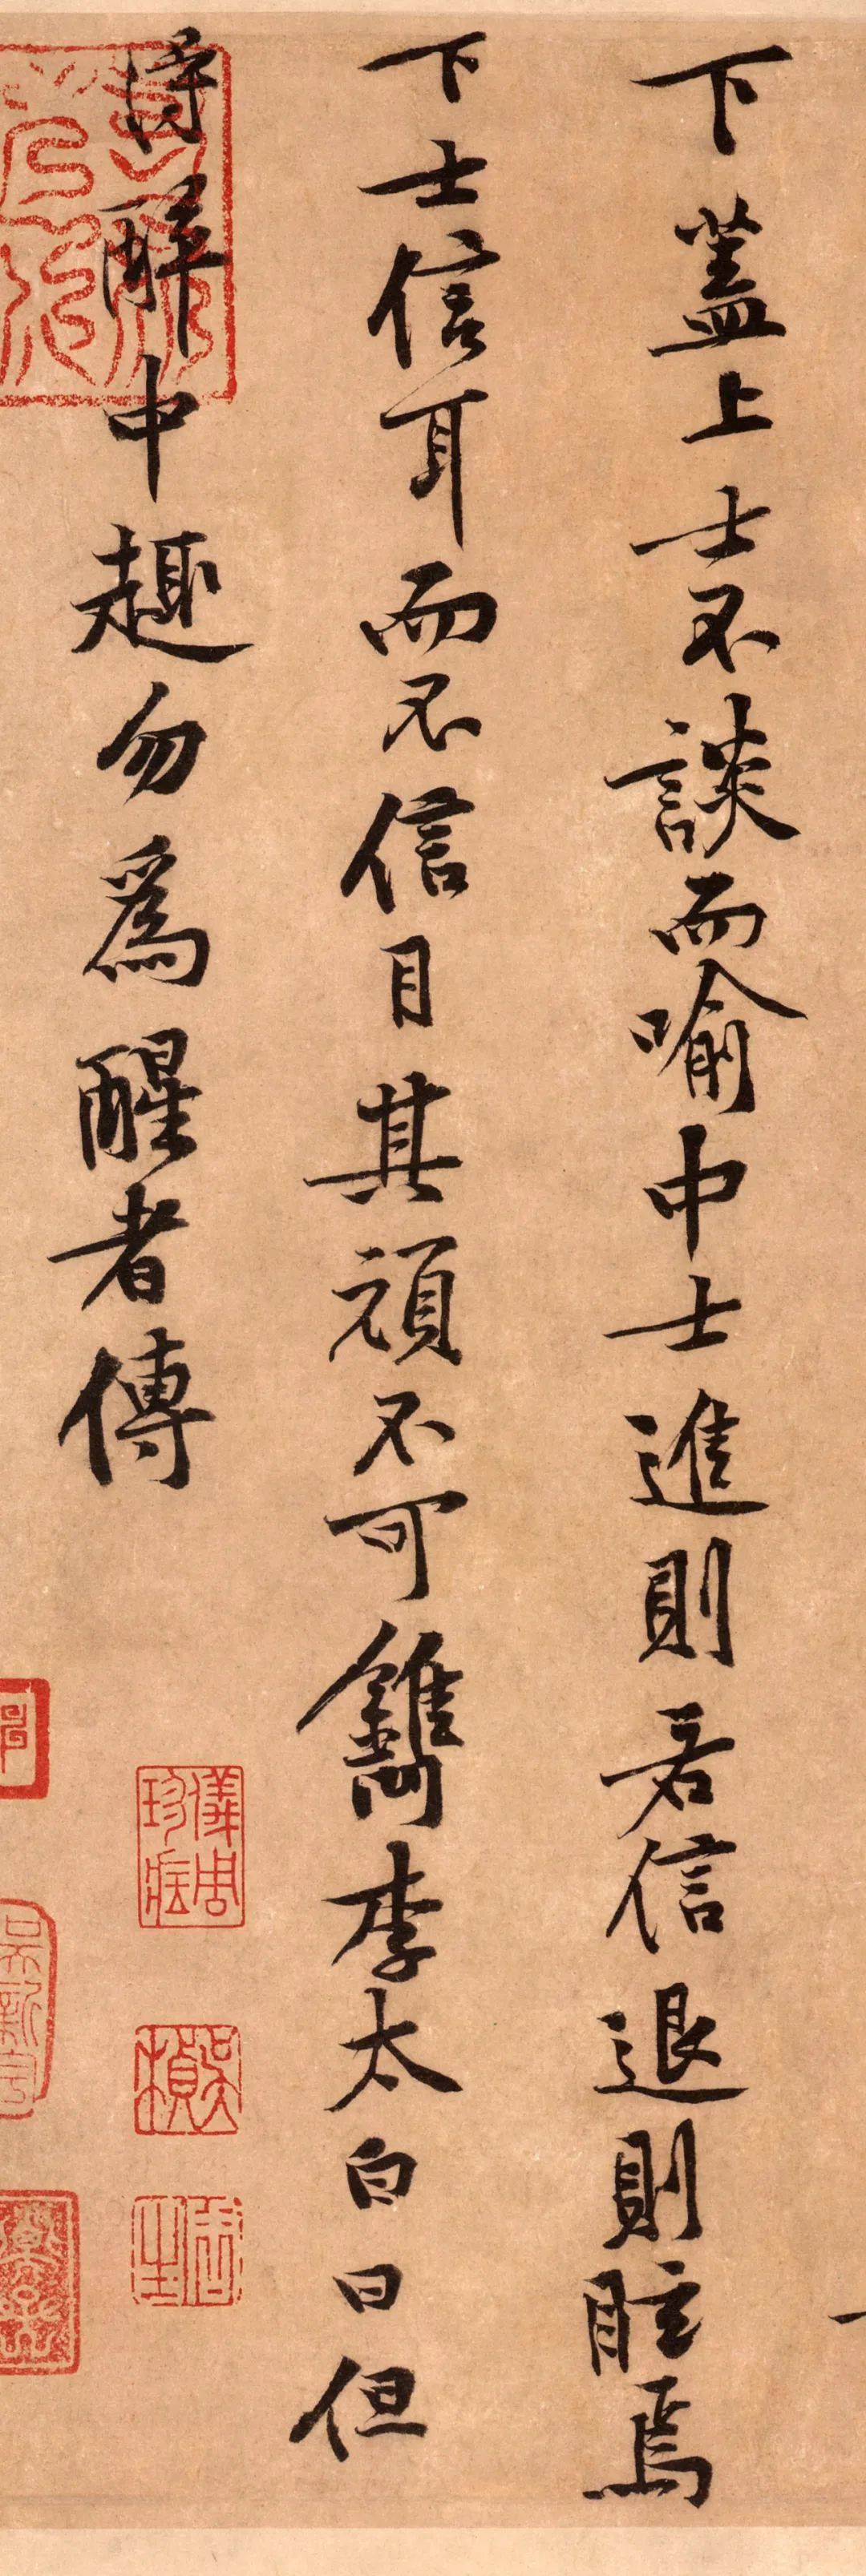 下蓋上士不談而喻中士進則若信退則眩焉
下士信耳而不信目其頑不可鐫李太白曰但
得醉中趣勿為醒者傳
儀周珍藏